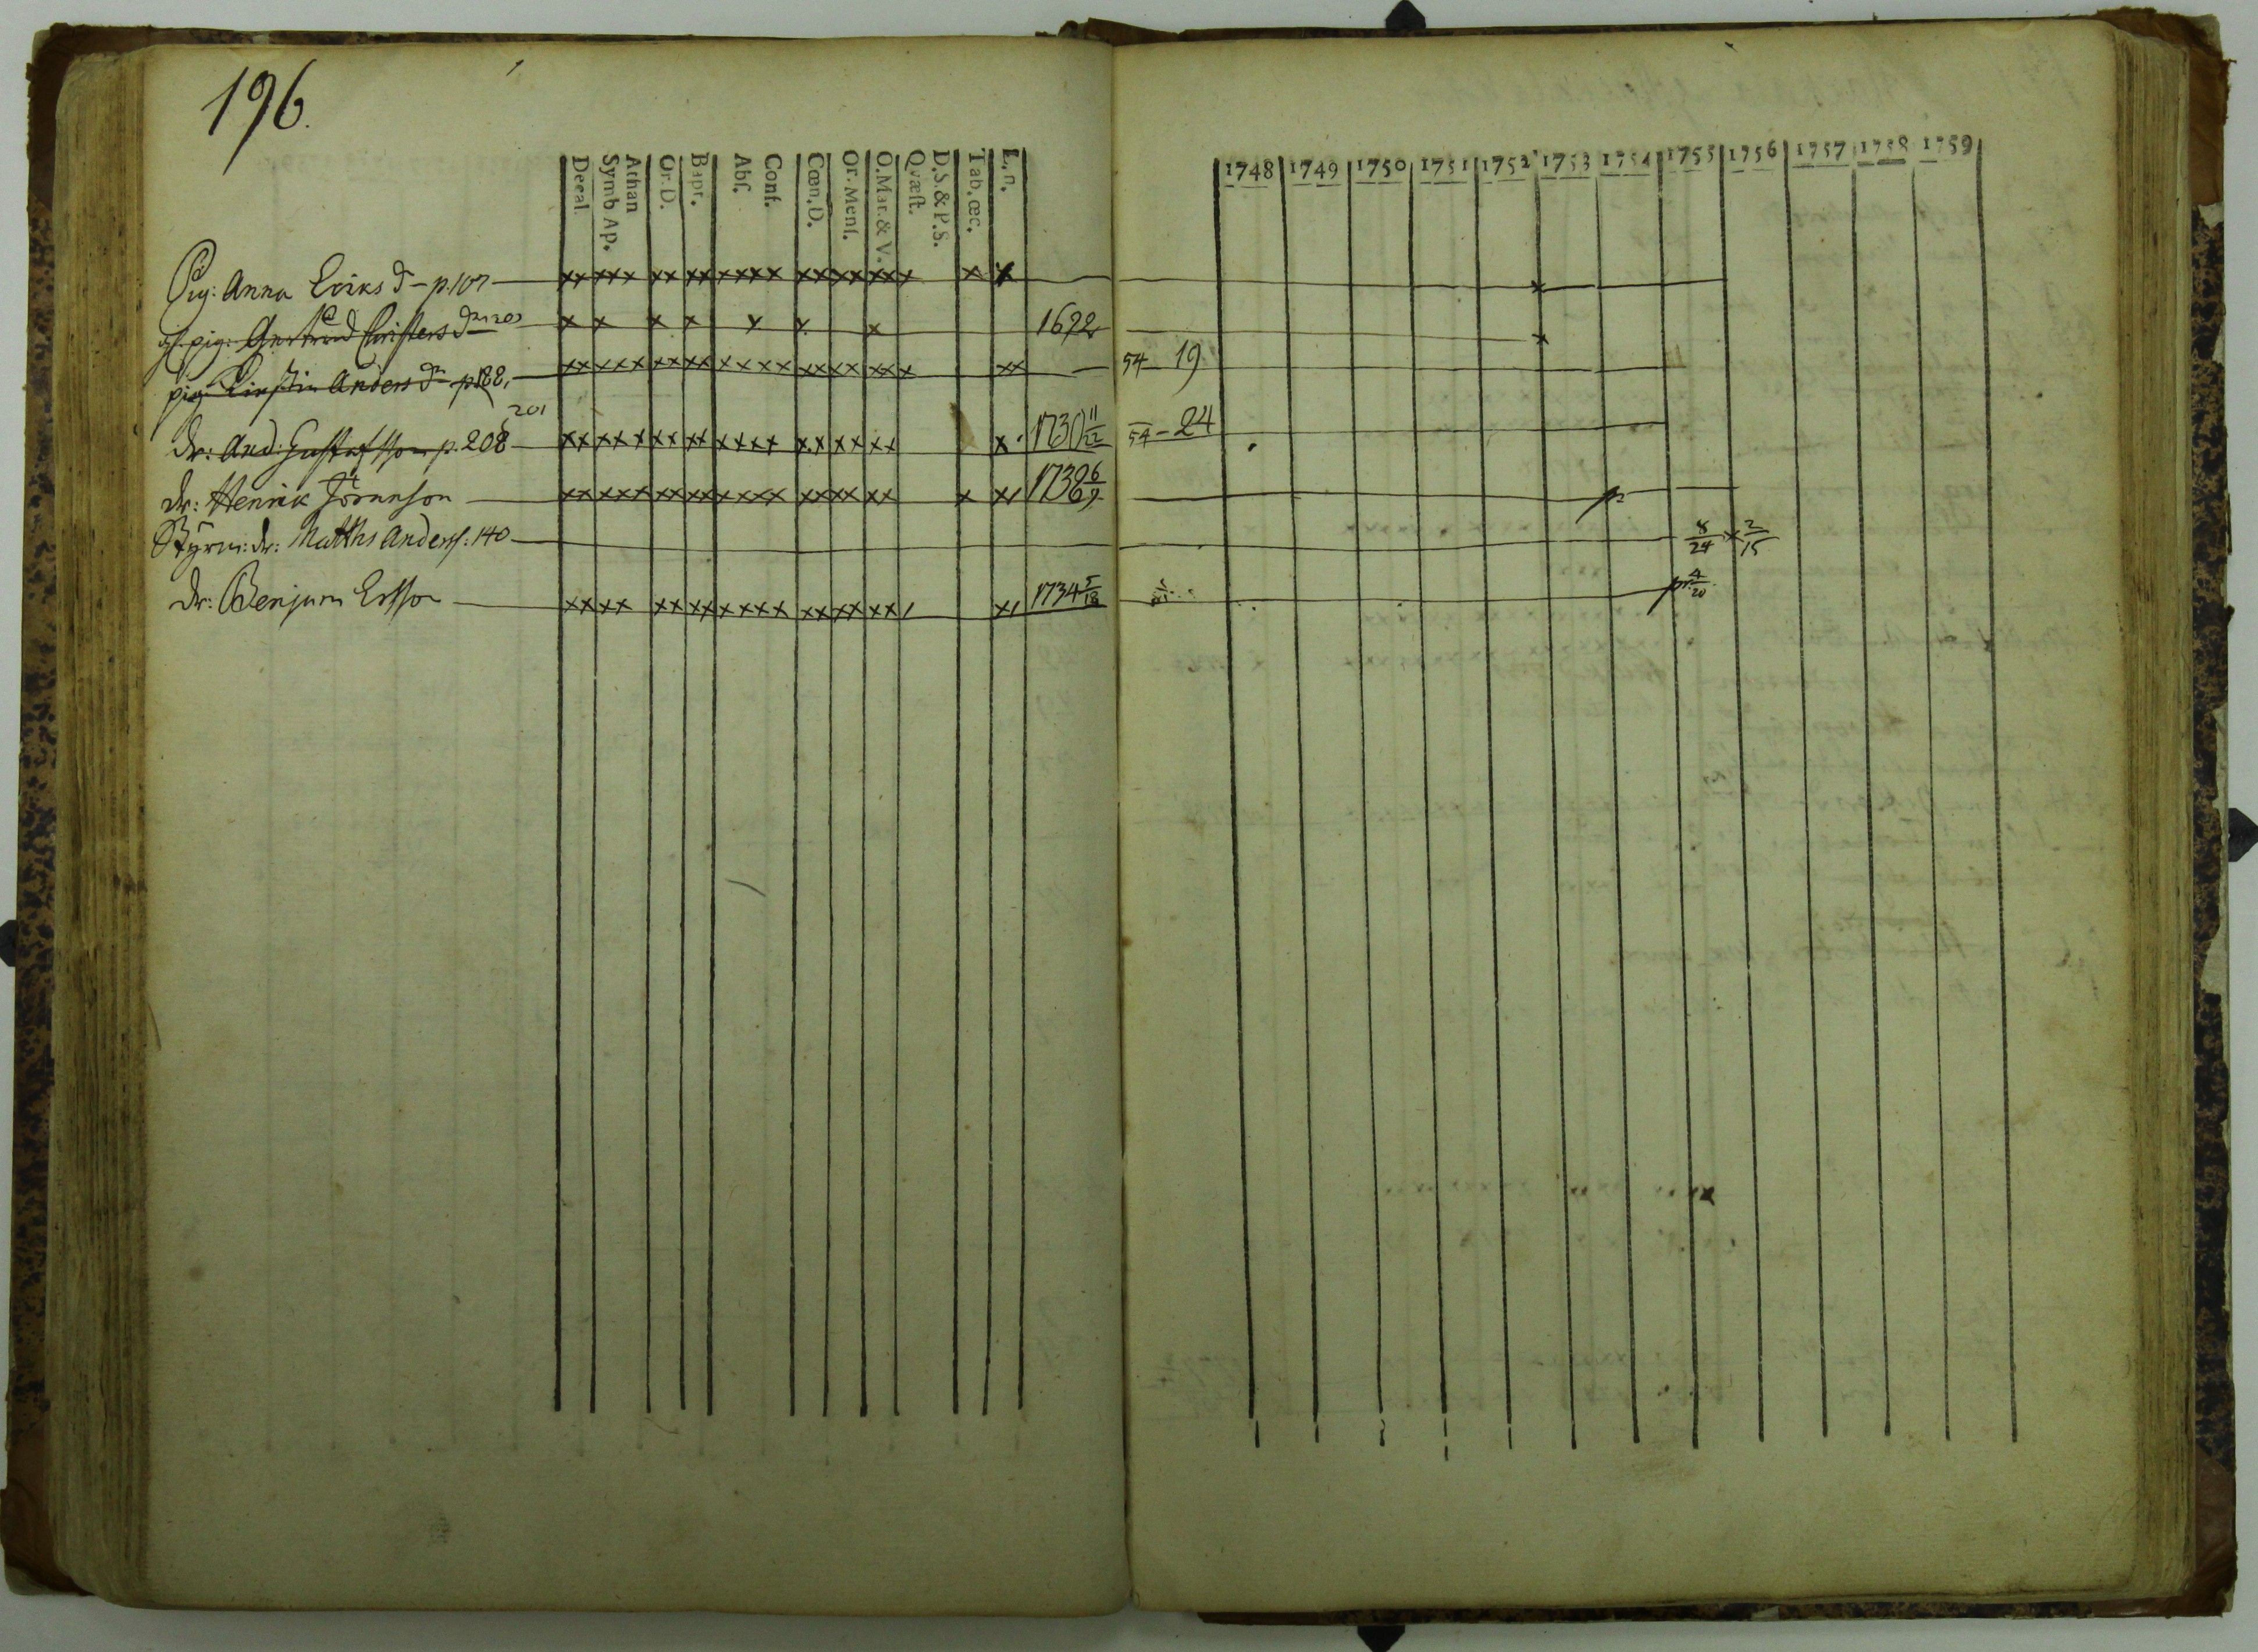 196.
Decal. Symb Ap. Athan Or. D. Bapt. Abſ. Conf. Cœn. D. Or. Menſ. O. Mat. & V. Qvæſt. D. S. & P. S. Tab. œc. L. n. 1748 1749 1750 1751 1752 1753 1754 1755 1756 1757 1758 1759
Pig: Anna Eriks d- p. 107 xx xxx xx xx xxxx xx xx xxx x x x
gl. pig: Gertrud Christers d x x x x x x x 1692 x
pig: Kirstin Anders dr p 188, xx xxx xx xx xxxx xx xx xxx xx 54 19
201
dr: And: Gustafsson p. 208 xx xxx xx xx xxxx xx xx xx x 1730 11/22 54 - 24
dr: Henrik Jöranson xx xxx xx xx xxxx xx xx xx x x/ 1738 6/9
Styrm: dr: Matths Anderss: 140 8/24 x 2/15
dr: Benjam Ersson xx xx xx xx xxxx xx xx xx/ x/ 1734 5/18 pr. 4/20